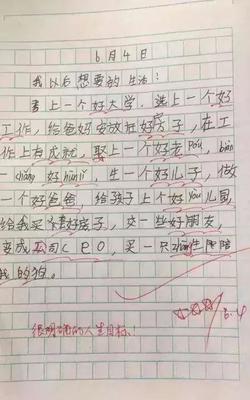 6月4日
我以后想要的生活:
考上一个好大学,选上一个好
工作,给爸妈安放社好房子,在工
作上有成就,娶上一个好老Pó,biàn
一chǎng好hūnlǐ,生一个好儿子,做
一个好爸爸,给孩子上个好yòu儿园,
给我买好房子,交一些好朋友,
变成公司CEO,买一只zhǎng伴陪
我的狗。
很明确的人生目标!
6.4